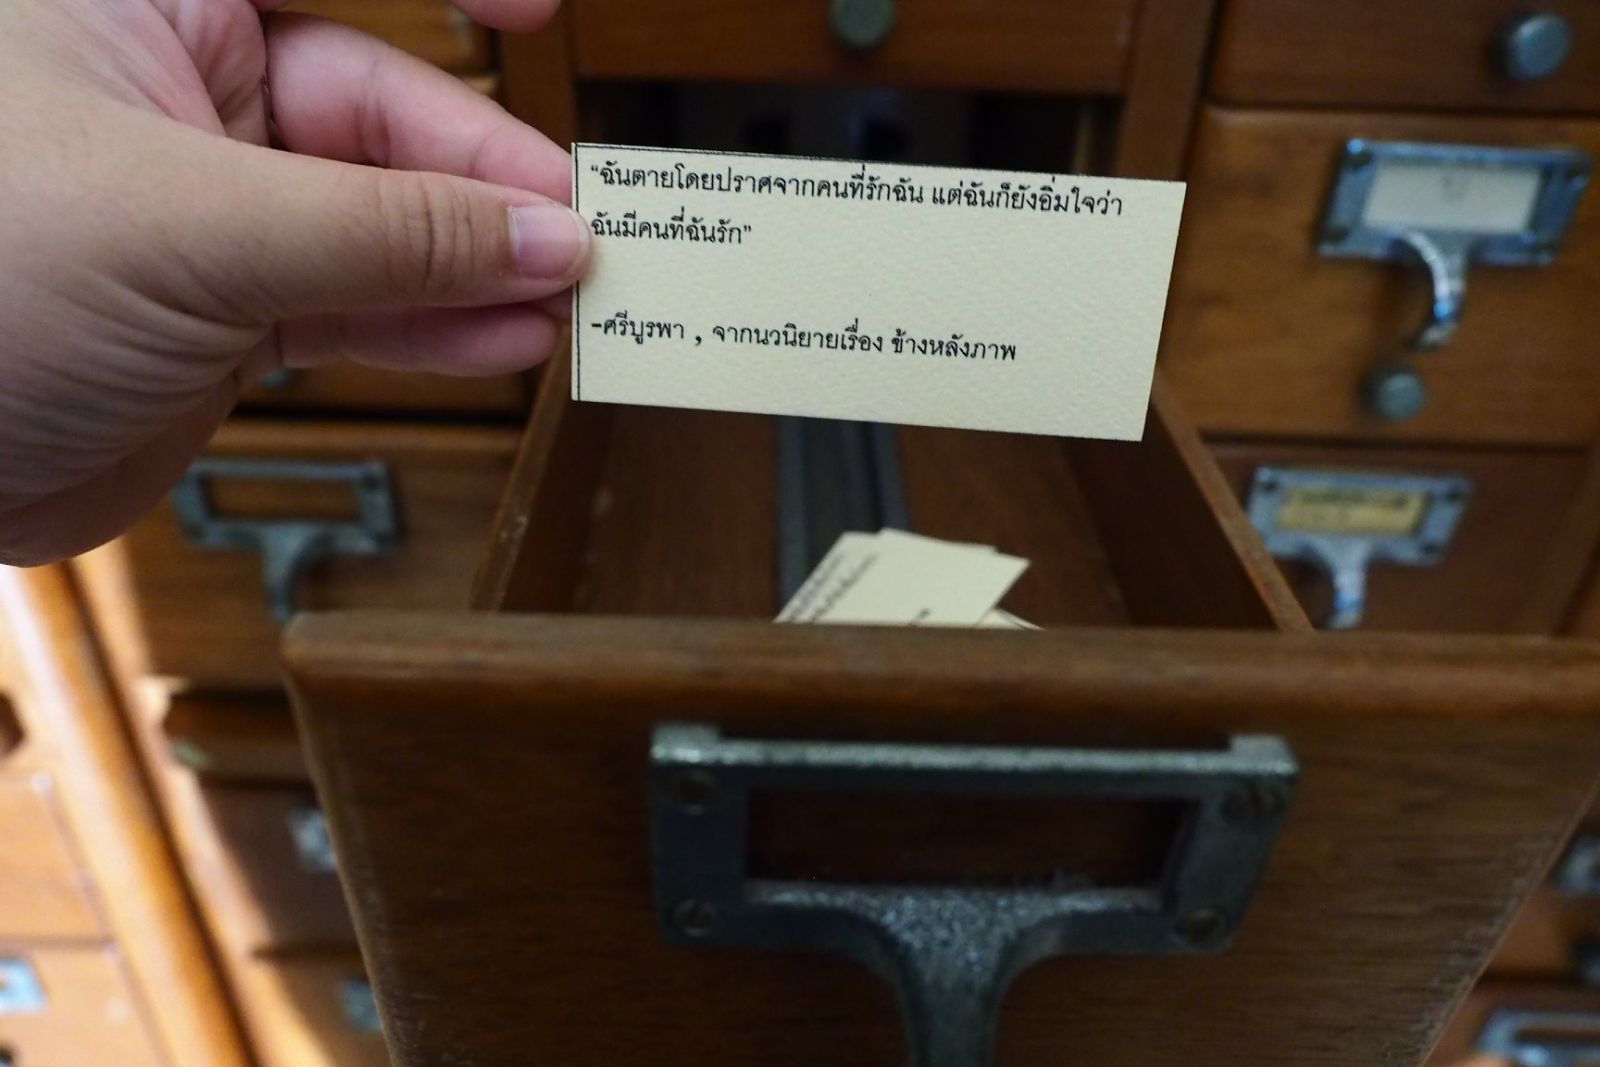 “ฉันตายโดยปราศจากคนที่รักฉัน แต่ฉันก็ยังอิ่มใจว่า
ฉันมีคนที่ฉันรัก”
-ศรีบูรพา , จากนวนิยายเรื่อง ข้างหลังภาพ